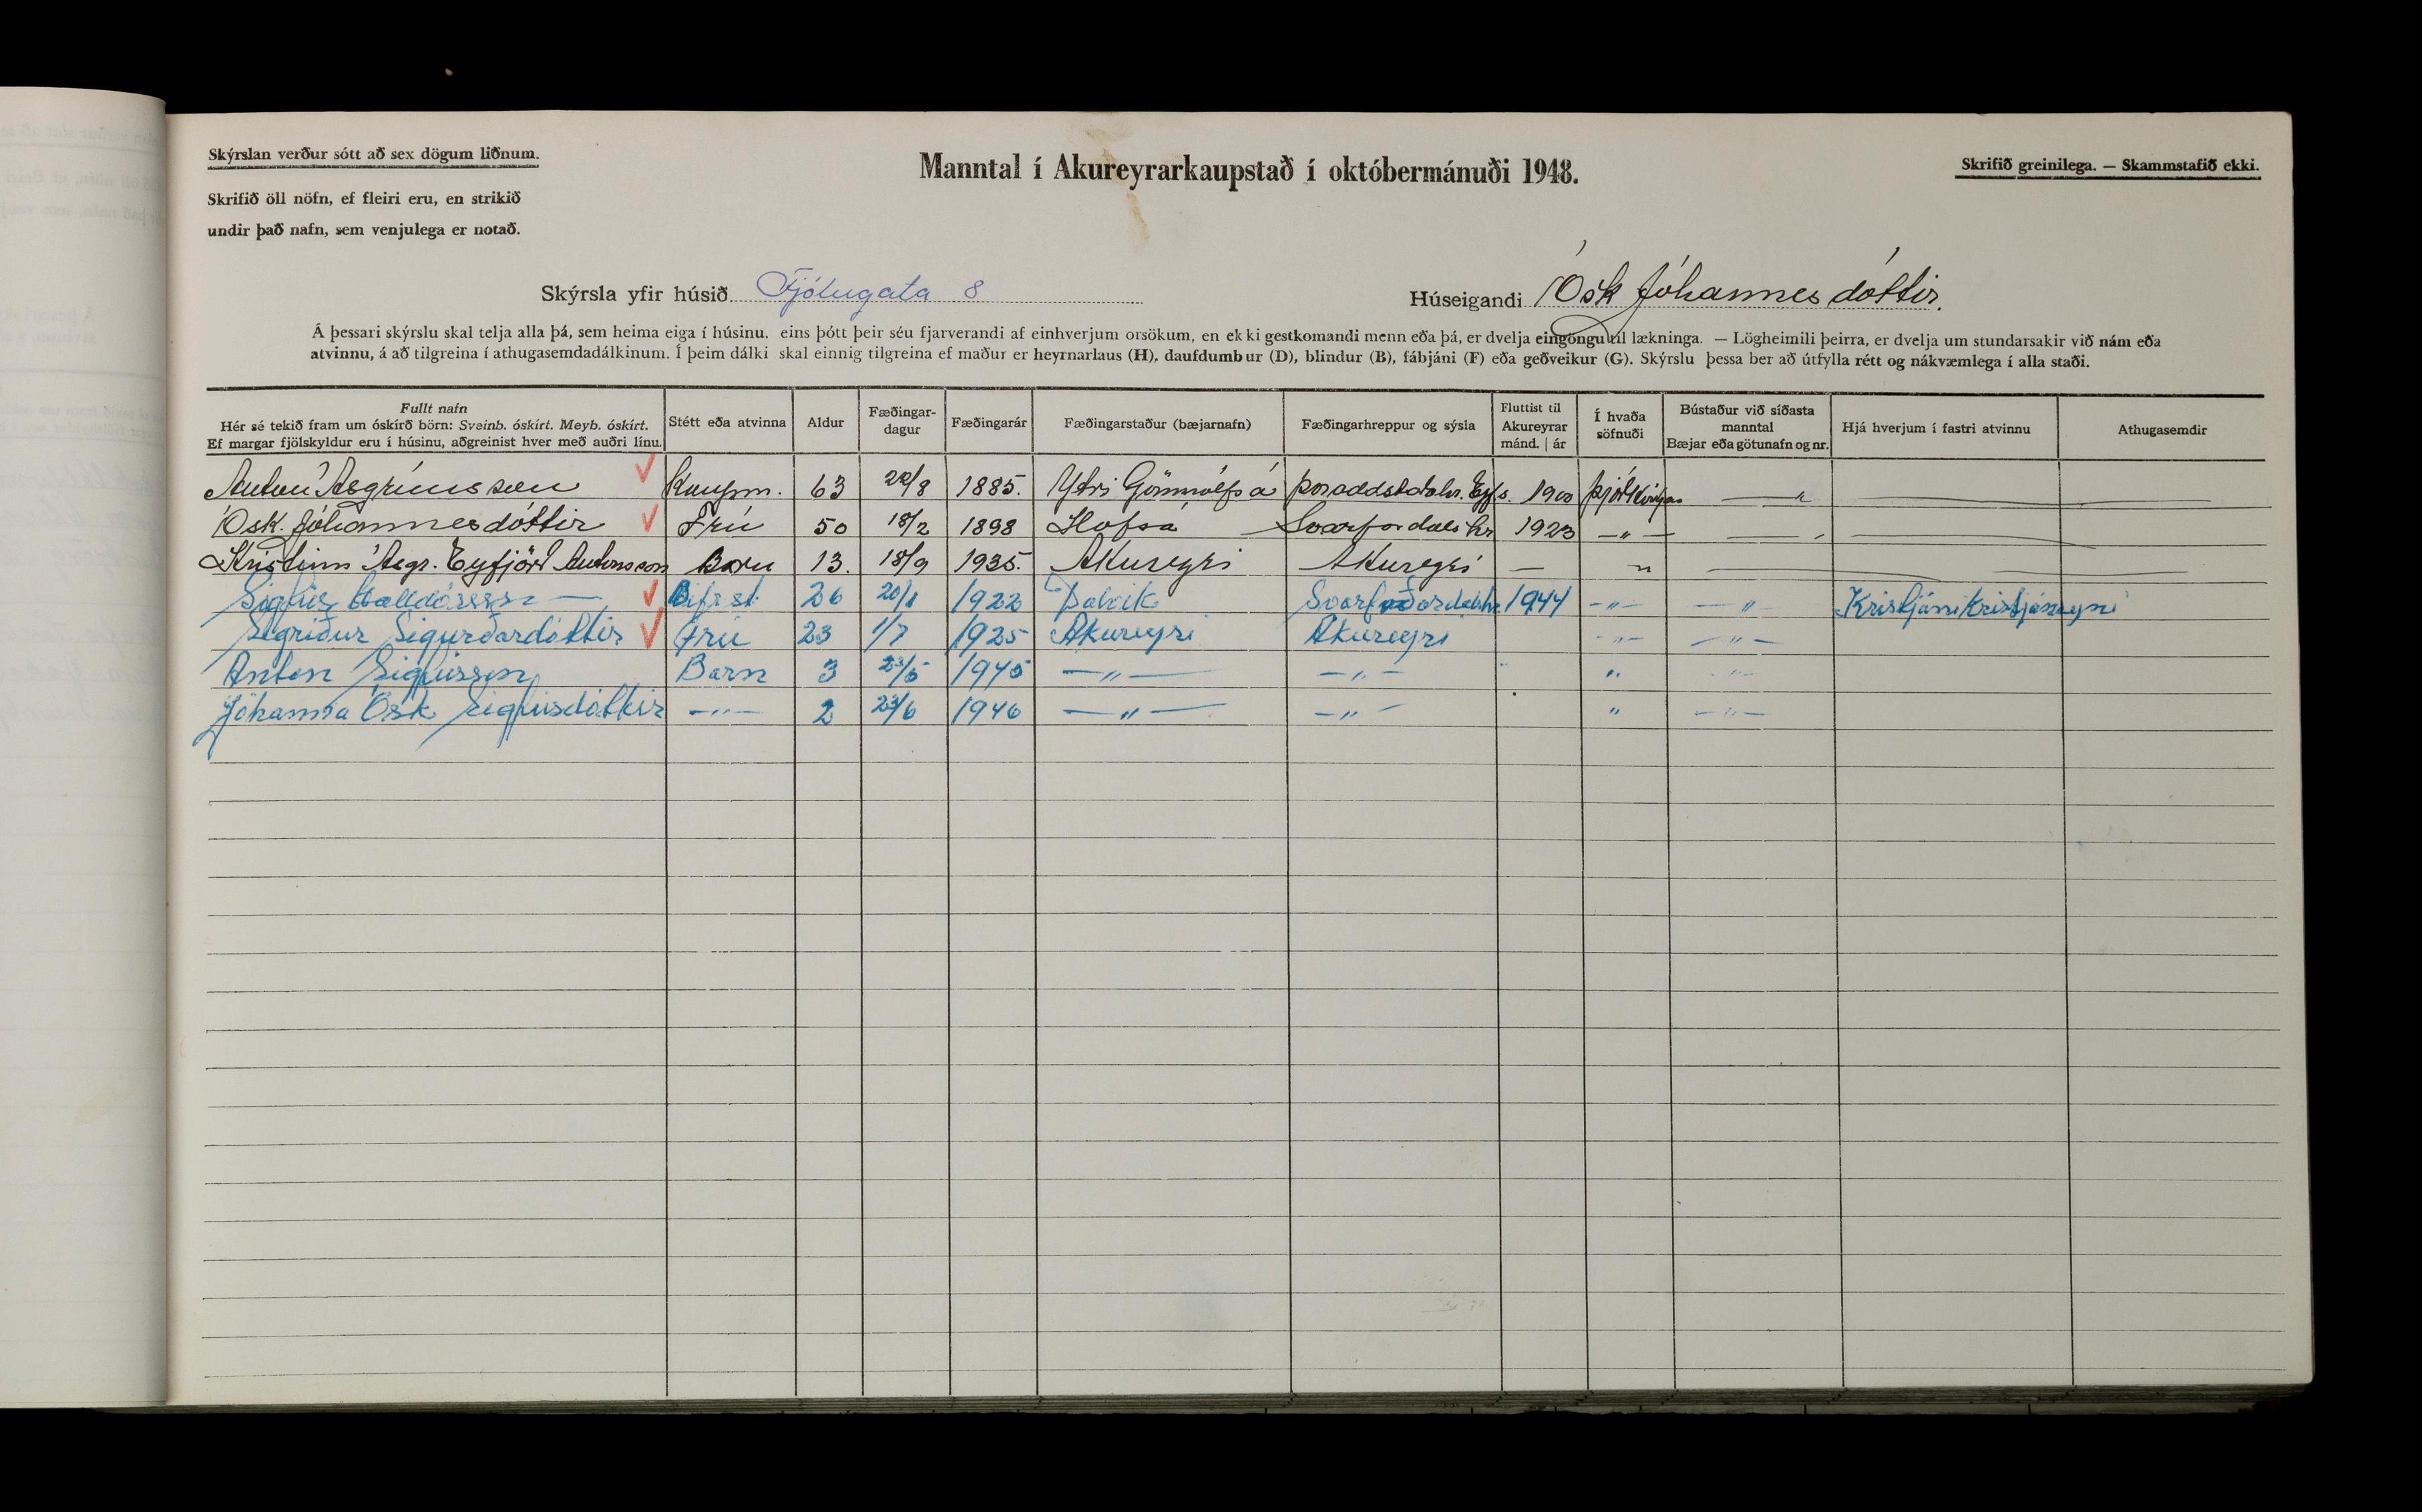 Skýrslan verður sótt að sex dögum liðnum.
Manntal í Akureyrarkaupstað í októbermánuði 1948.
Skrifið greinilega. — Skammstafið ekki.
Skrifið öll nöfn, ef fleiri eru, en strikið
undir það nafn, sem venjulega er notað.
Skýrsla yfir húsið Fjólugata 8 Húseigandi Ósk Jóhannesdóttir.
Á þessari skýrslu skal telja alla þá, sem heima eiga í húsinu, eins þótt þeir séu fjarverandi af einhverjum orsökum, en ekki gestkomandi menn eða þá, er dvelja eingöngu til lækninga. — Lögheimili þeirra, er dvelja um stundarsakir við nám eða
atvinnu, á að tilgreina í athugasemdadálkinum. Í þeim dálki skal einnig tilgreina ef maður er heyrnarlaus (H), daufdumbur (D), blindur (B), fábjáni (F) eða geðveikur (G). Skýrslu þessa ber að útfylla rétt og nákvæmlega í alla staði.
Fullt nafn
Hér sé tekið fram um óskírð börn: Sveinb. óskírt. Meyb. óskírt.
Ef margar fjölskyldur eru í húsinu, aðgreinist hver með auðri línu.
Stétt eða atvinna
Aldur
Fæðingar-
dagur
Fæðingarár
Fæðingarstaður (bæjarnafn)
Fæðingarhreppur og sýsla
Fluttist til
Akureyrar
mánd. | ár
Í hvaða
söfnuði
Bústaður við síðasta
manntal
Bæjar eða götunafn og nr.
Hjá hverjum í fastri atvinnu
Athugasemdir
Anton Ásgrímsson Kaupm. 63 20/8 1885. Ytri Gönnólfsá Þoraddstaðahr. Eyfs. 1900 — " —
Ósk. Jóhannesdóttir Frú 50 18/2 1898 Hofsá Svarfordalshr 1923 — " —
Kristinn Ásgr. Eyfjörð Antonsson Barn 13. 18/9 1935. Akureyri Akureyri — "
Sigfús Halldórsson — Bifrst. 26 20/1 1922 Dalvík Svarfaðardalshr 1944 — " — — " — Kristjáni Kristjánssyni
Sigríður Sigurðardóttir Frú 23 1/7 1925 Akureyri Akureyri — " — — " —
Anton Sigfússon Barn 3 23/5 1945 — " — — " — " — " —
Jóhanna Ósk Sigfúsdóttir — " — 2 23/6 1946 — " — — " — " — " —